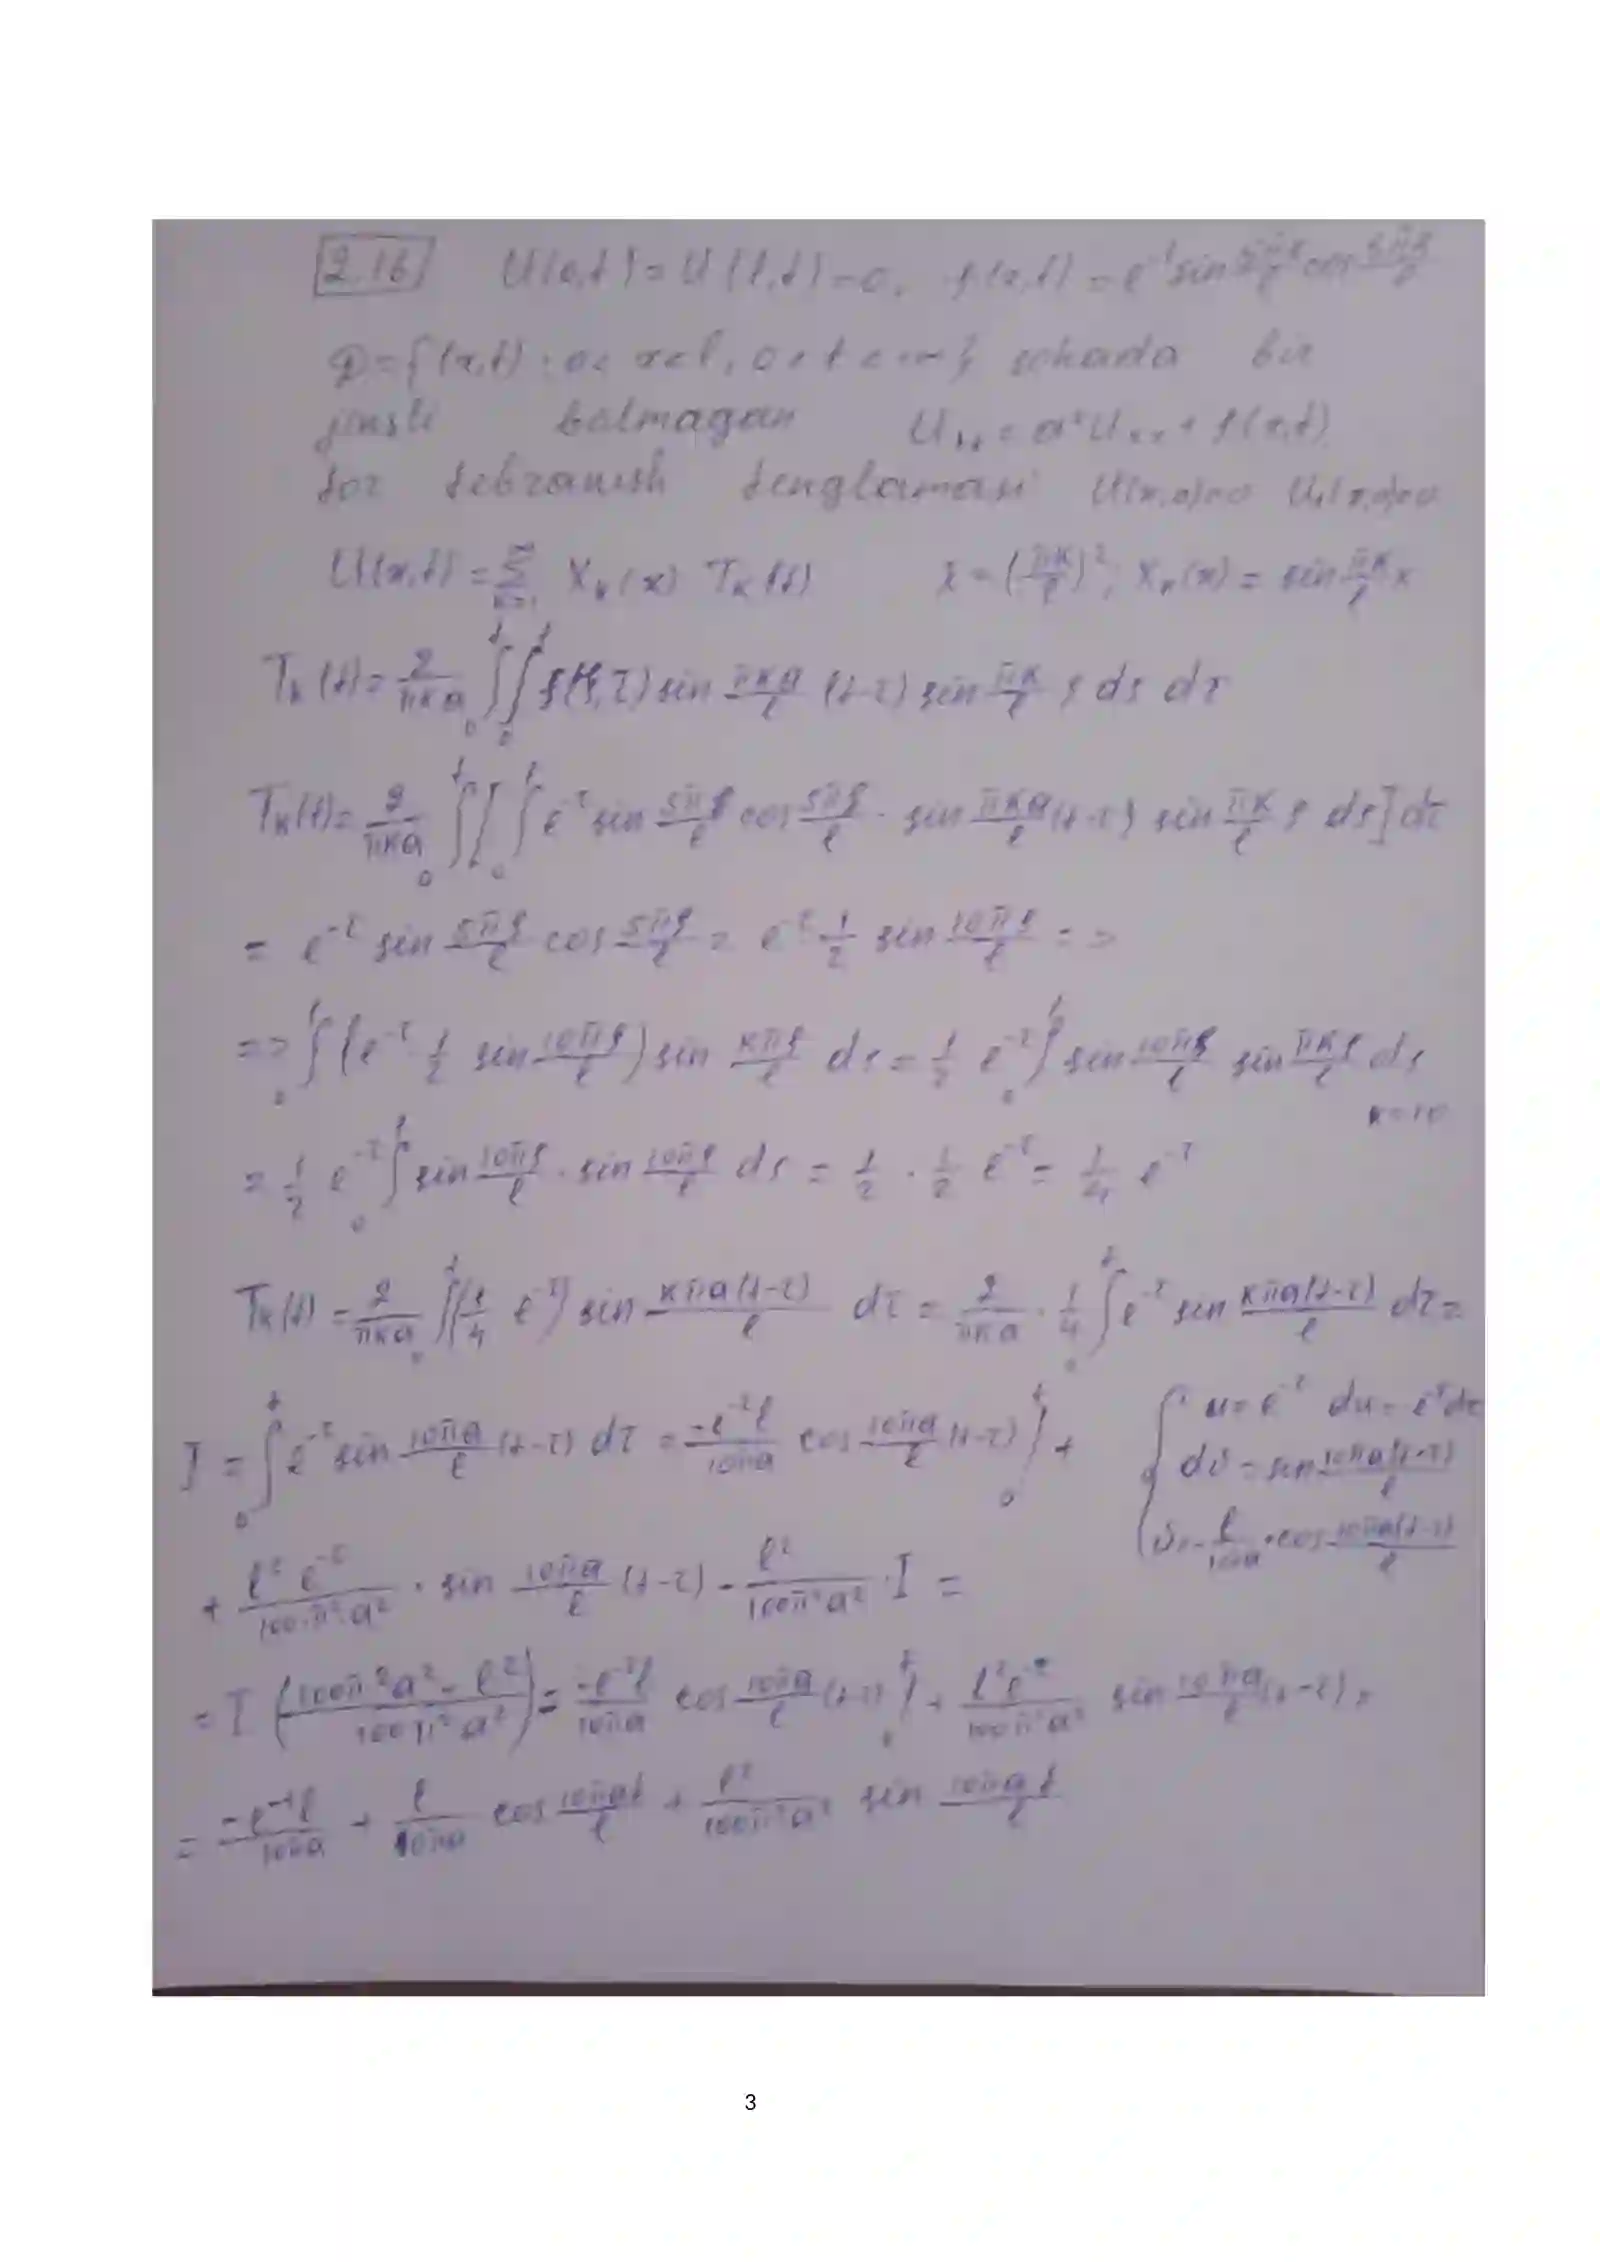 2.16 U(0,t) = U(l,t) = 0, f(x,t) = e^{-t} sin 5πx/l cos 5πx/l
D = {(x,t) : 0 < x < l, 0 < t < ∞} sohada bir
jinsli bolmagan U_{tt} = a² U_{xx} + f(x,t)
tor tebranish tenglamasi U(x,0)=0 U_t(x,0)=0
U(x,t) = ∑_{k=1}^{∞} X_k(x) T_k(t) λ = (πk/l)², X_k(x) = sin πk/l x
T_k(t) = 2/πka ∫_0^t ∫_0^l f(ξ,τ) sin πka/l (t-τ) sin πk/l ξ dξ dτ
T_k(t) = 2/πka ∫_0^t [ ∫_0^l e^{-τ} sin 5πξ/l cos 5πξ/l · sin πka/l (t-τ) sin πk/l ξ dξ ] dτ
= e^{-τ} sin 5πξ/l cos 5πξ/l = e^{-τ} 1/2 sin 10πξ/l =>
=> ∫_0^l (e^{-τ} 1/2 sin 10πξ/l) sin kπξ/l dξ = 1/2 e^{-τ} ∫_0^l sin 10πξ/l sin πkξ/l dξ
k=10
= 1/2 e^{-τ} ∫_0^l sin 10πξ/l · sin 10πξ/l dξ = 1/2 · 1/2 e^{-τ} = 1/4 e^{-τ}
T_k(t) = 2/πka ∫_0^t (1/4 e^{-τ}) sin kπa(t-τ)/l dτ = 2/πka · 1/4 ∫_0^t e^{-τ} sin kπa(t-τ)/l dτ =
I = ∫_0^t e^{-τ} sin 10πa/l (t-τ) dτ = -e^{-τ}l/10πa cos 10πa/l (t-τ) |_0^t +
{ u = e^{-τ} du = e^{-τ}dτ
dv = sin 10πa(t-τ)/l
v = -l/10πa · cos 10πa(t-τ)/l
+ l² e^{-τ}/100π²a² · sin 10πa/l (t-τ) - l²/100π²a² · I =
= I (100π²a² - l²/100π²a²) = -e^{-τ}l/10πa cos 10πa/l (t-τ) |_0^t + l²e^{-τ}/100π²a² sin 10πa/l (t-τ) =
= -e^{-t}l/10πa + l/10πa cos 10πat/l + l²/100π²a² sin 10πat/l
3